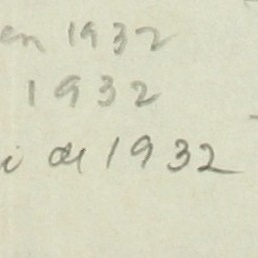 en 1932
1932
i de 1932